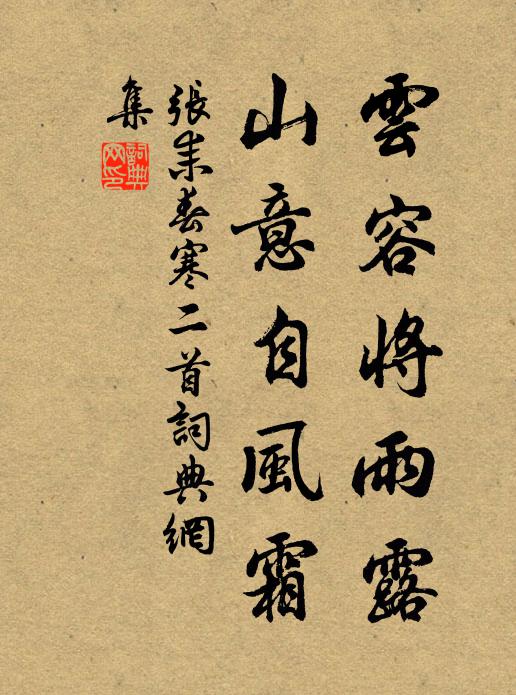 雲容將雨露
山意自風霜
張耒春寒二首詞典網
集
詞典
网印